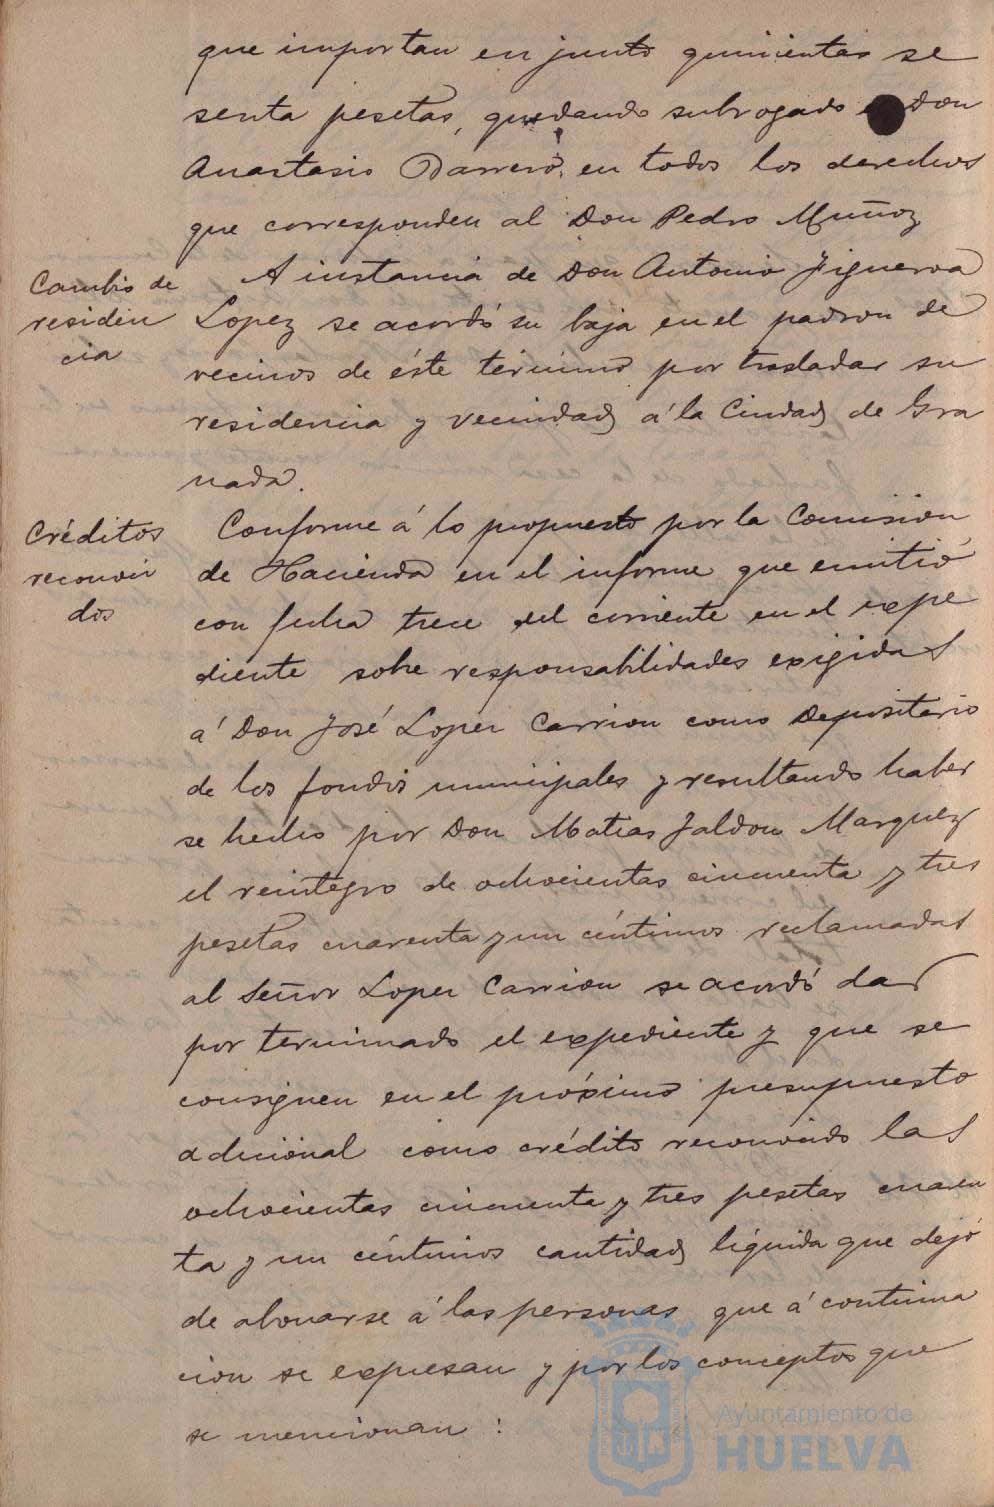 que importan en junto quinientas se
senta pesetas, quedando subrogado Don
Anastasio Barrero, en todos los derechos
que corresponden al Don Pedro Muñoz
Cambio de
residen
cia
A instancia de Don Antonio Figueroa
Lopez se acordó su baja en el padron de
vecinos de éste término por trasladar su
residencia y vecindad á la Ciudad de Gra
nada.
Créditos
reconoci
dos
Conforme á lo propuesto por la Comisión
de Hacienda en el informe que emitió
con fecha trece del corriente en el expe
diente sobre responsabilidades exigidas
á Don José Lopez Carrion como Depositario
de los fondos municipales y resultando haber
se hecho por Don Matias Jaldon Marquez
el reintegro de ochocientas cincuenta y tres
pesetas cuarenta y un céntimos reclamadas
al Señor Lopez Carrion se acordó dar
por terminado el expediente y que se
consiguen en el próximo presupuesto
adicional como crédito reconocido las
ochocientas cincuenta y tres pesetas cuaren
ta y un céntimos cantidad líquida que dejó
de abonarse á las personas que á continua
cion se expresan y por los conceptos que
se mencionan :
Ayuntamiento de
HUELVA